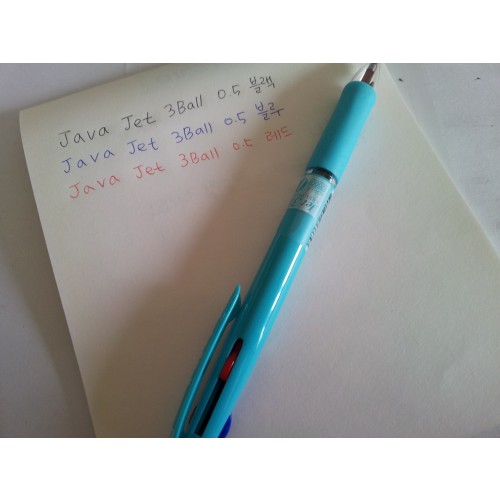 Java Jet 3Ball 0.5 블랙
Java Jet 3Ball 0.5 블루
Java Jet 3Ball 0.5 레드